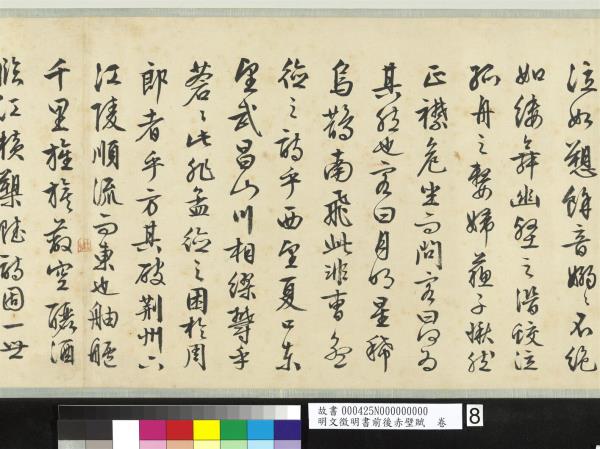 泣如愬餘音嫋〻不絕
如縷舞幽壑之潛蛟泣
孤舟之嫠婦蘇子愀然
正襟危坐而問客曰何為
其然也客曰月明星稀
烏鵲南飛此非曹孟
德之詩乎西望夏口東
望武昌山川相繆鬱乎
蒼〻此非孟德之困於周
郎者乎方其破荊州下
江陵順流而東也舳艫
千里旌旗蔽空釃酒
臨江橫槊賦詩固一世
故書 000425N000000000
明文徵明書前後赤壁賦 卷
8